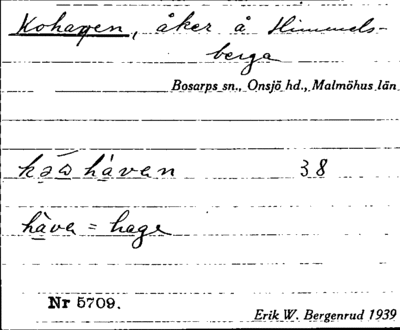 Kohagen, åker å Himmels-
berga
Bosarps sn., Onsjö hd., Malmöhus län
håvan 38
håva = hage
Nr 5709.
Erik W. Bergenrud 1939